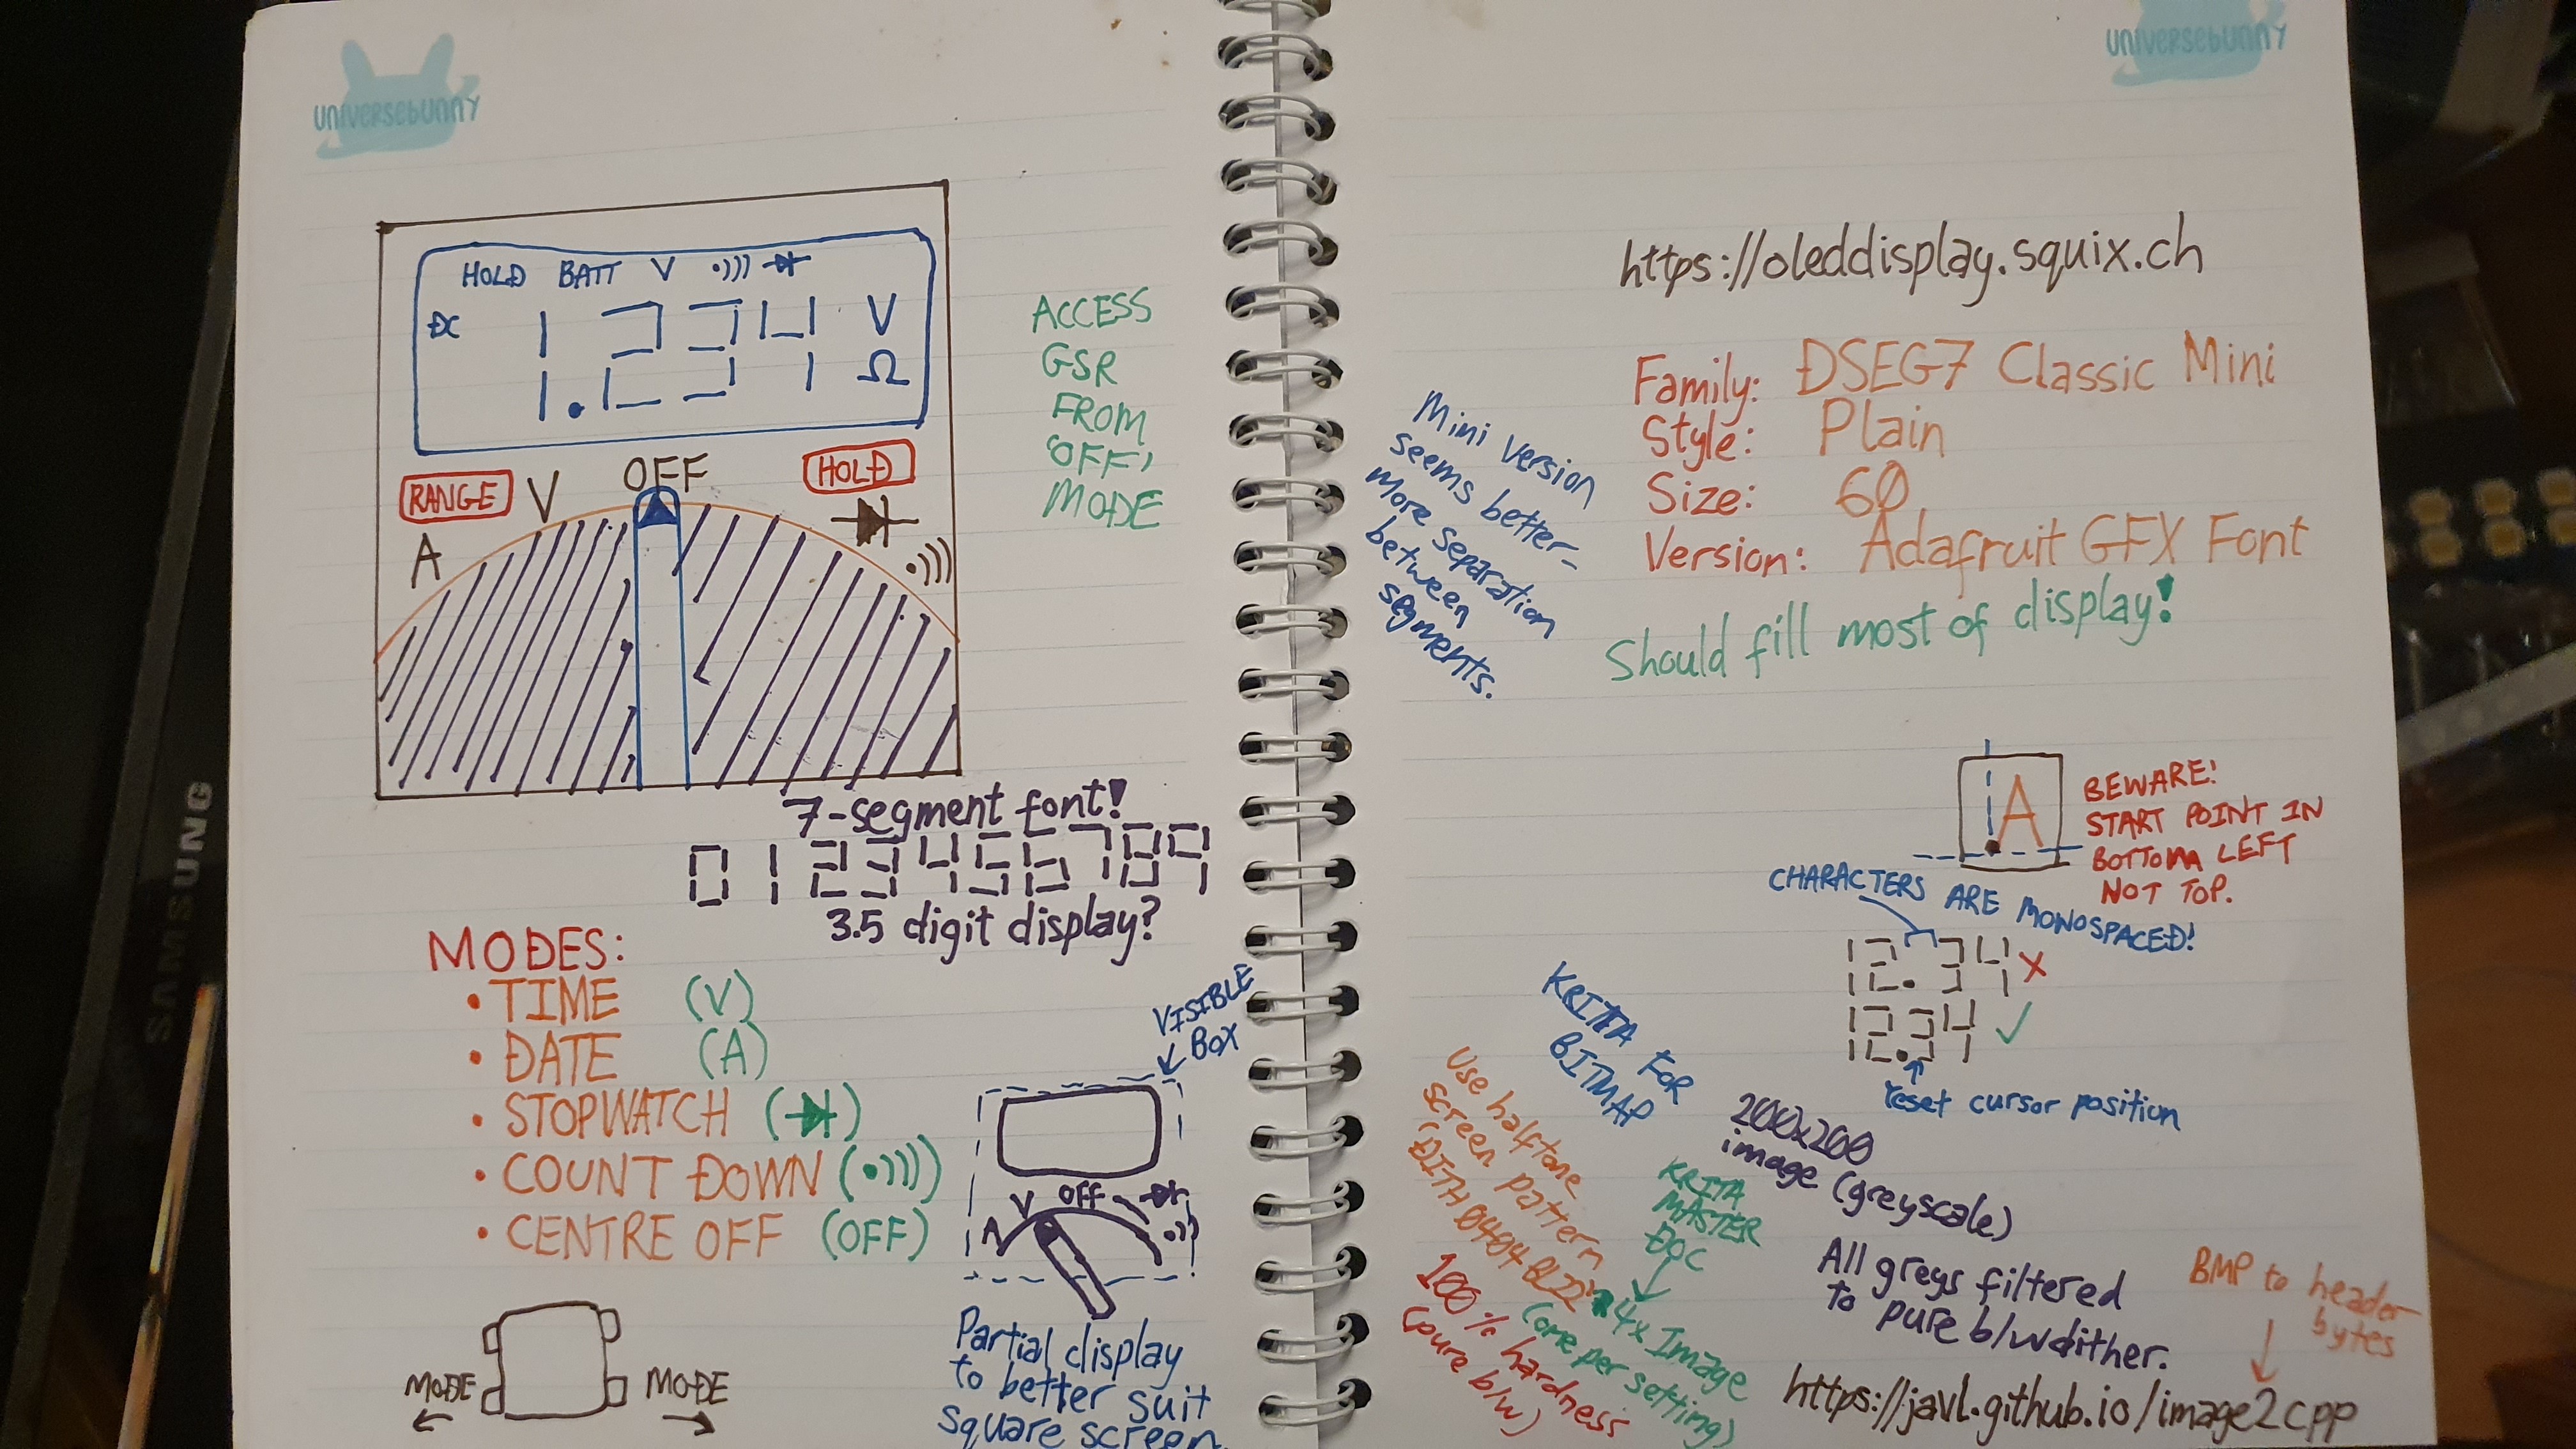 UNIVERSEBUNNY
HOLD BATT V •)))
DC 1.234 V
Ω
RANGE
V
OFF
HOLD
A
•)))
ACCESS
GSR
FROM
'OFF'
MODE
7-segment font!
0123456789
3.5 digit display?
MODES:
• TIME (V)
• DATE (A)
• STOPWATCH ( )
• COUNT DOWN (•)))
• CENTRE OFF (OFF)
MODE
←
MODE
→
VISIBLE
BOX
A V OFF •))
Partial display
to better suit
square screen.
UNIVERSEBUNNY
https://oleddisplay.squix.ch
Family: DSEG7 Classic Mini
Style: Plain
Size: 60
Version: Adafruit GFX Font
Should fill most of display!
Mini version
seems better-
more separation
between
segments.
A
BEWARE!
START POINT IN
BOTTOM LEFT
NOT TOP.
CHARACTERS ARE MONOSPACED!
12. 34 X
12.34 ✓
reset cursor position
KRITA FOR
BITMAP
Use halftone
screen pattern
(DITH 0404 BL22)
100% hardness
(pure b/w)
KRITA
MASTER
DOC
4x Image
(one per setting)
200x200
image (greyscale)
All greys filtered
to pure b/w dither.
BMP to header
bytes
https://javl.github.io/image2cpp
SAMSUNG